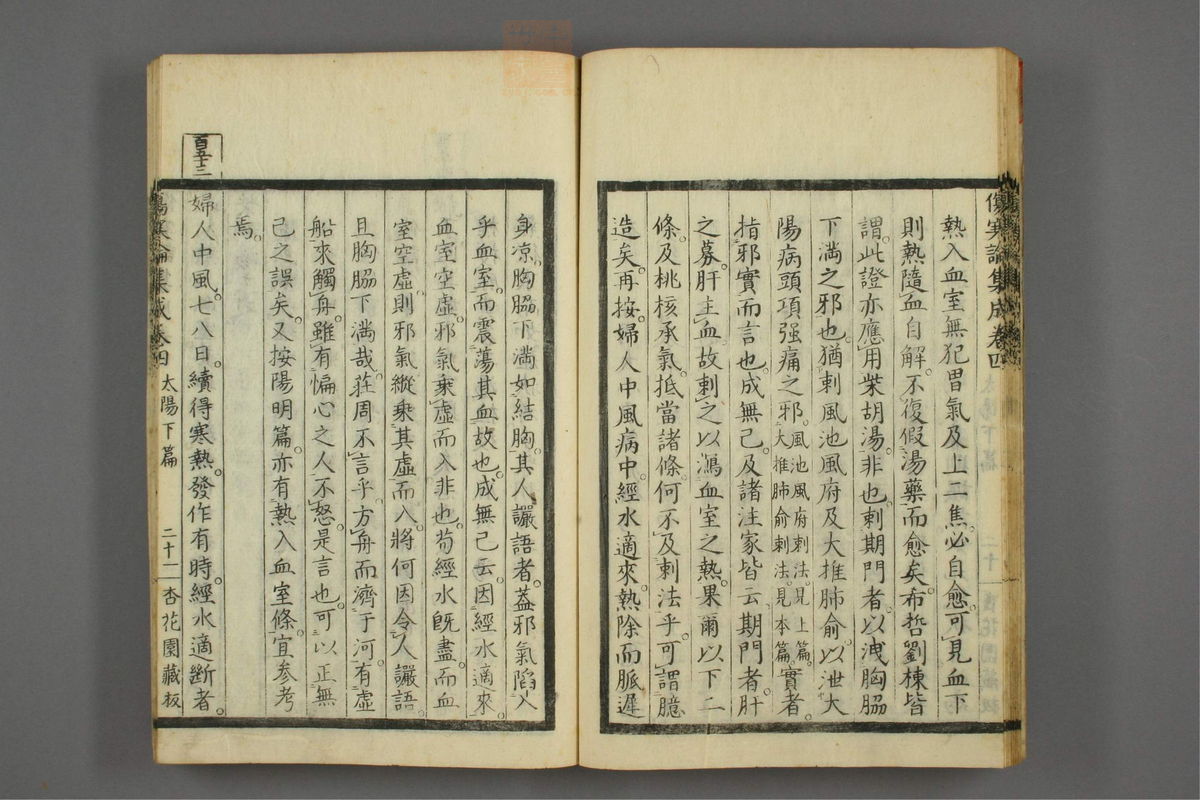 傷寒論集成卷四
熱入血室無犯胃氣及上二焦必自愈可見血下
則熱隨血自解不復假湯藥而愈矣希哲劉棟皆
謂此證亦應用柴胡湯非也刺期門者以洩胸脇
下滿之邪也猶刺風池風府及大推肺俞以泄大
陽病頭項强痛之邪風池風府刺法見上篇大推肺俞刺法見本篇實者
指邪實而言也成無己及諸注家皆云期門者肝
之募肝主血故刺之以瀉血室之熱果爾以下二
條及桃核承氣抵當諸條何不及刺法乎可謂臆
造矣再按婦人中風病中經水適來熱除而脈遲
身涼胸脇下滿如結胸其人讝語者蓋邪氣陷入
乎血室而震蕩其血故也成無己云因經水適來
血室空虛邪氣乘虛而入非也苟經水既盡而血
室空虛則邪氣縱乘其虛而入將何因令人讝語
且胸脇下滿哉莊周不言乎方舟而濟于河有虛
船來觸舟雖有惼心之人不怒是言也可以正無
己之誤矣又按陽明篇亦有熱入血室條宜參考
焉
百五十三
婦人中風七八日續得寒熱發作有時經水適斷者
傷寒論集成卷四 太陽下篇 二十一 杏花園藏板